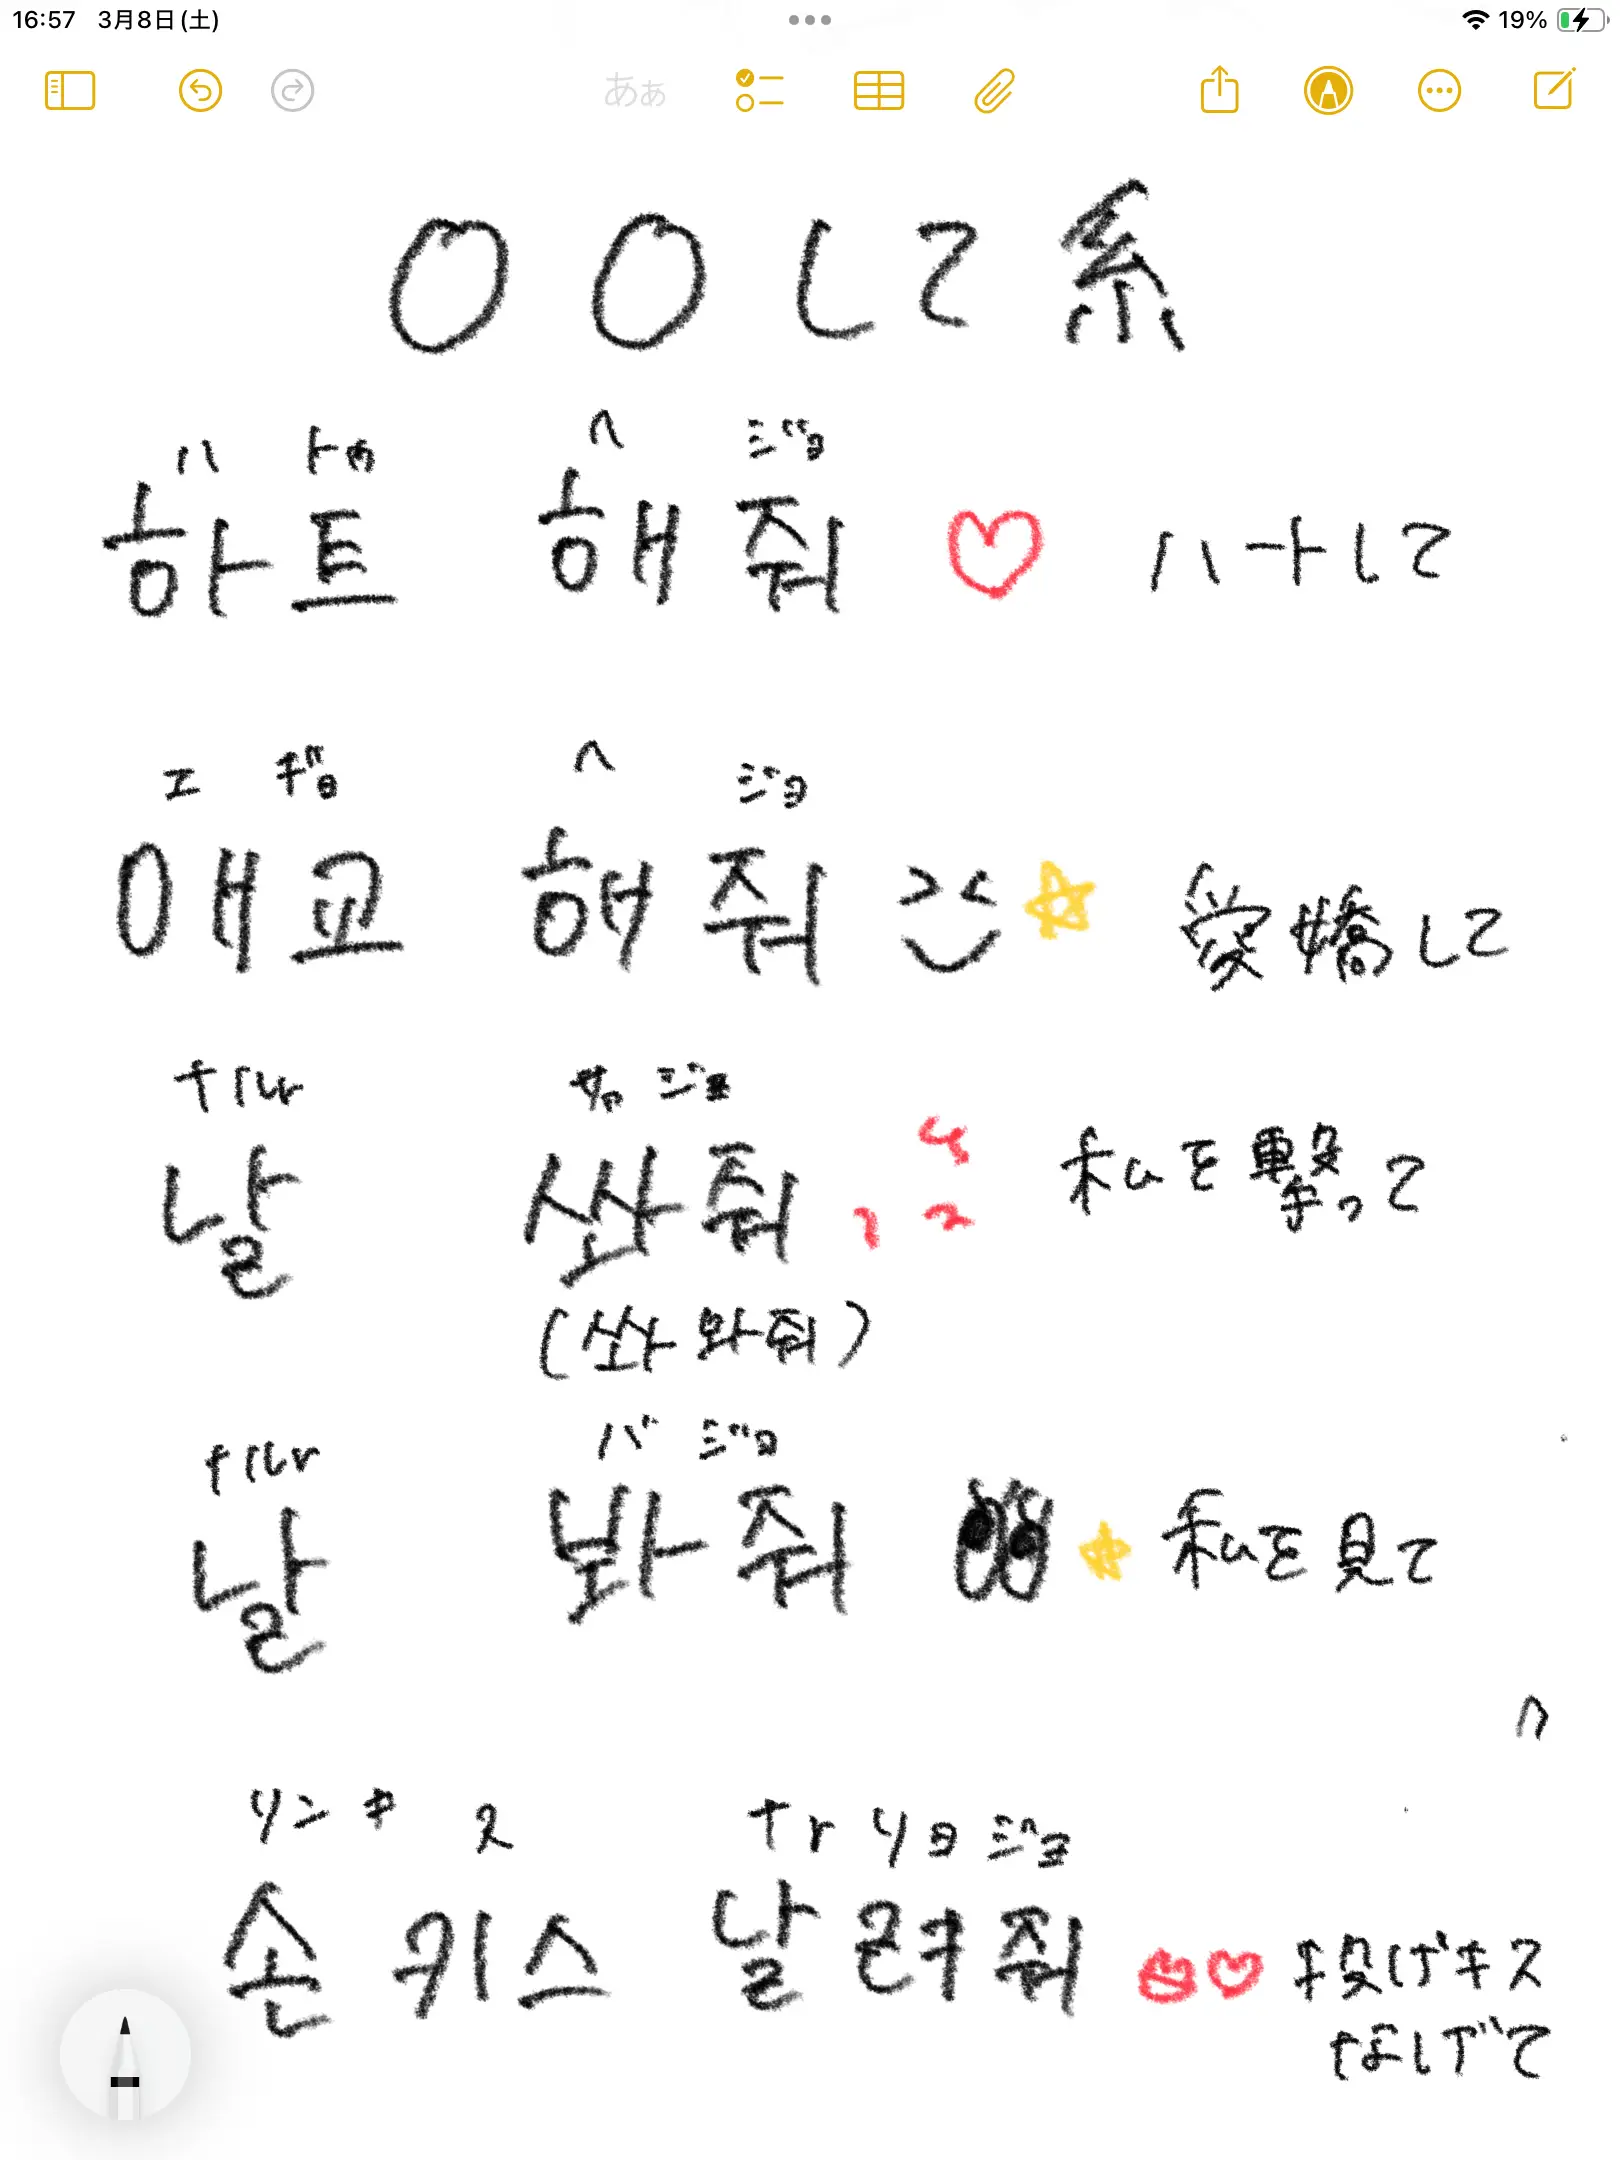 16:57 3月8日(土) 19%
あぁ
〇〇して系
ハ トゥ ヘ ジョ
하트 해줘 ハートして
エ ギョ ヘ ジョ
애교 해줘 愛嬌して
ナル サ ジョ
날 쏴줘 私を撃って
(쏘아줘)
ナル バ ジョ
날 봐줘 私を見て
ソン キ ス ナr リョ ジョ
손 키스 날려줘 投げキス
なげて